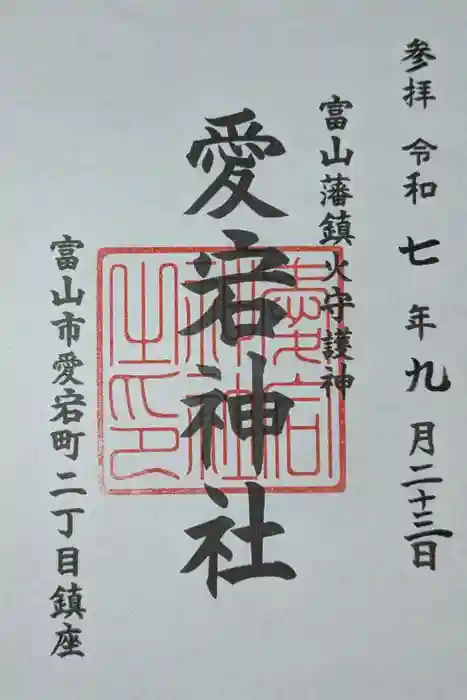 参拝 令和七年九月二十三日
富山藩鎮火守護神
愛宕神社
富山市愛宕町二丁目鎮座
愛宕
神社
之印